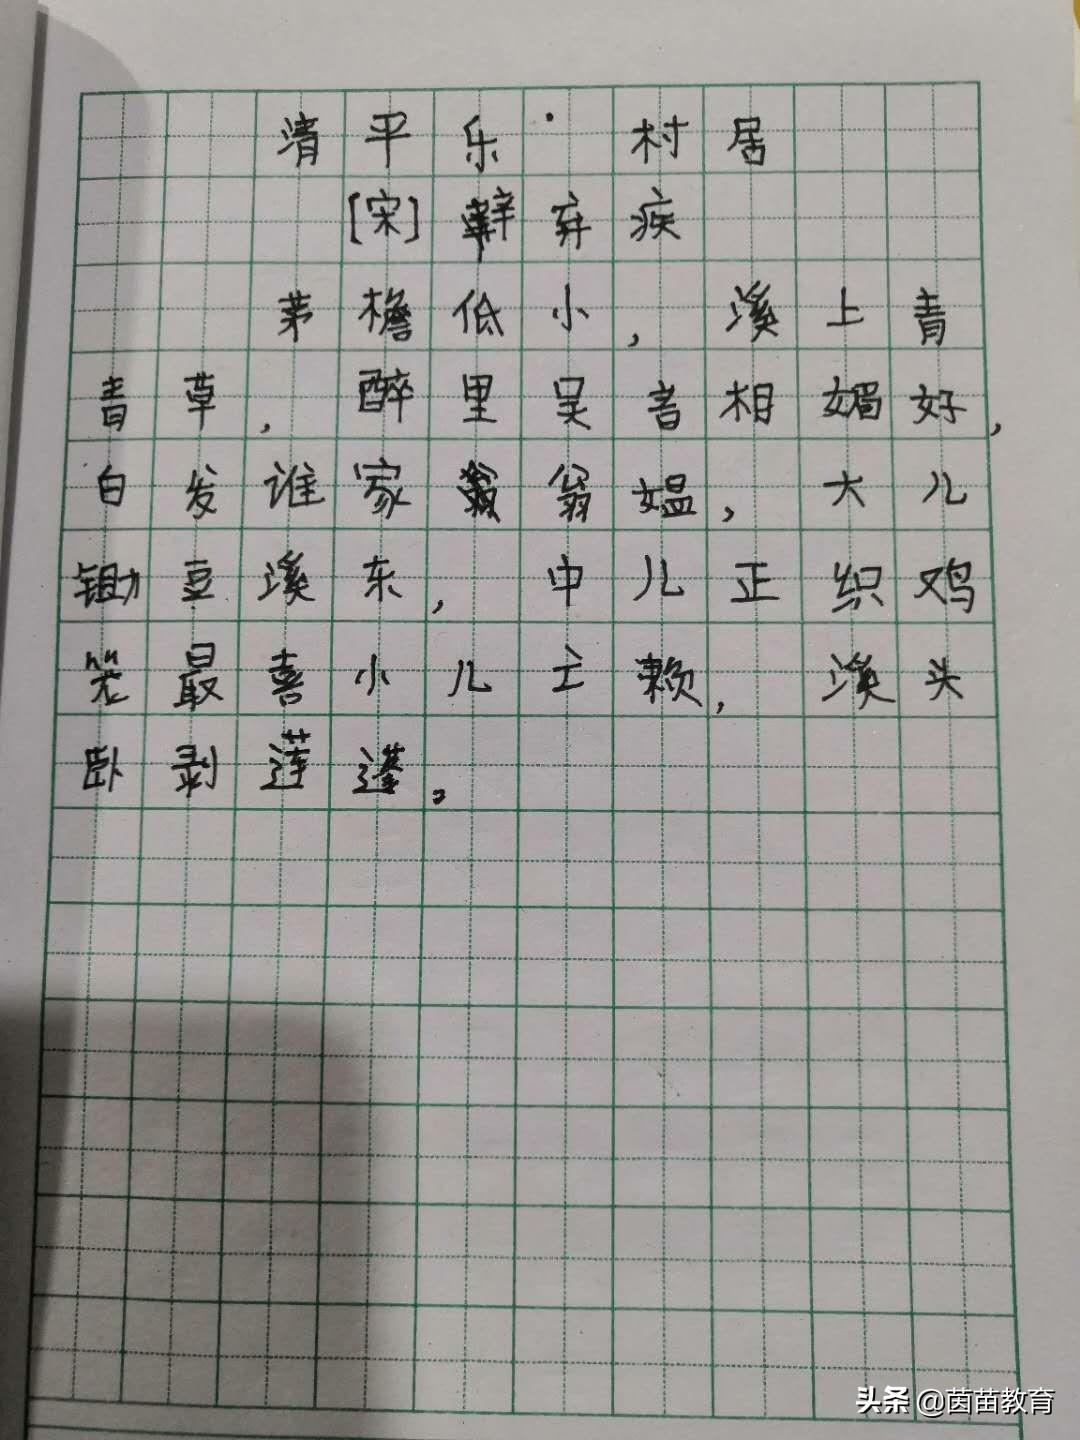 清平乐·村居
[宋]辛弃疾
茅檐低小,溪上青
青草,醉里吴音相媚好,
白发谁家翁媪,大儿
锄豆溪东,中儿正织鸡
笼最喜小儿亡赖,溪头
卧剥莲蓬。
头条@茵苗教育